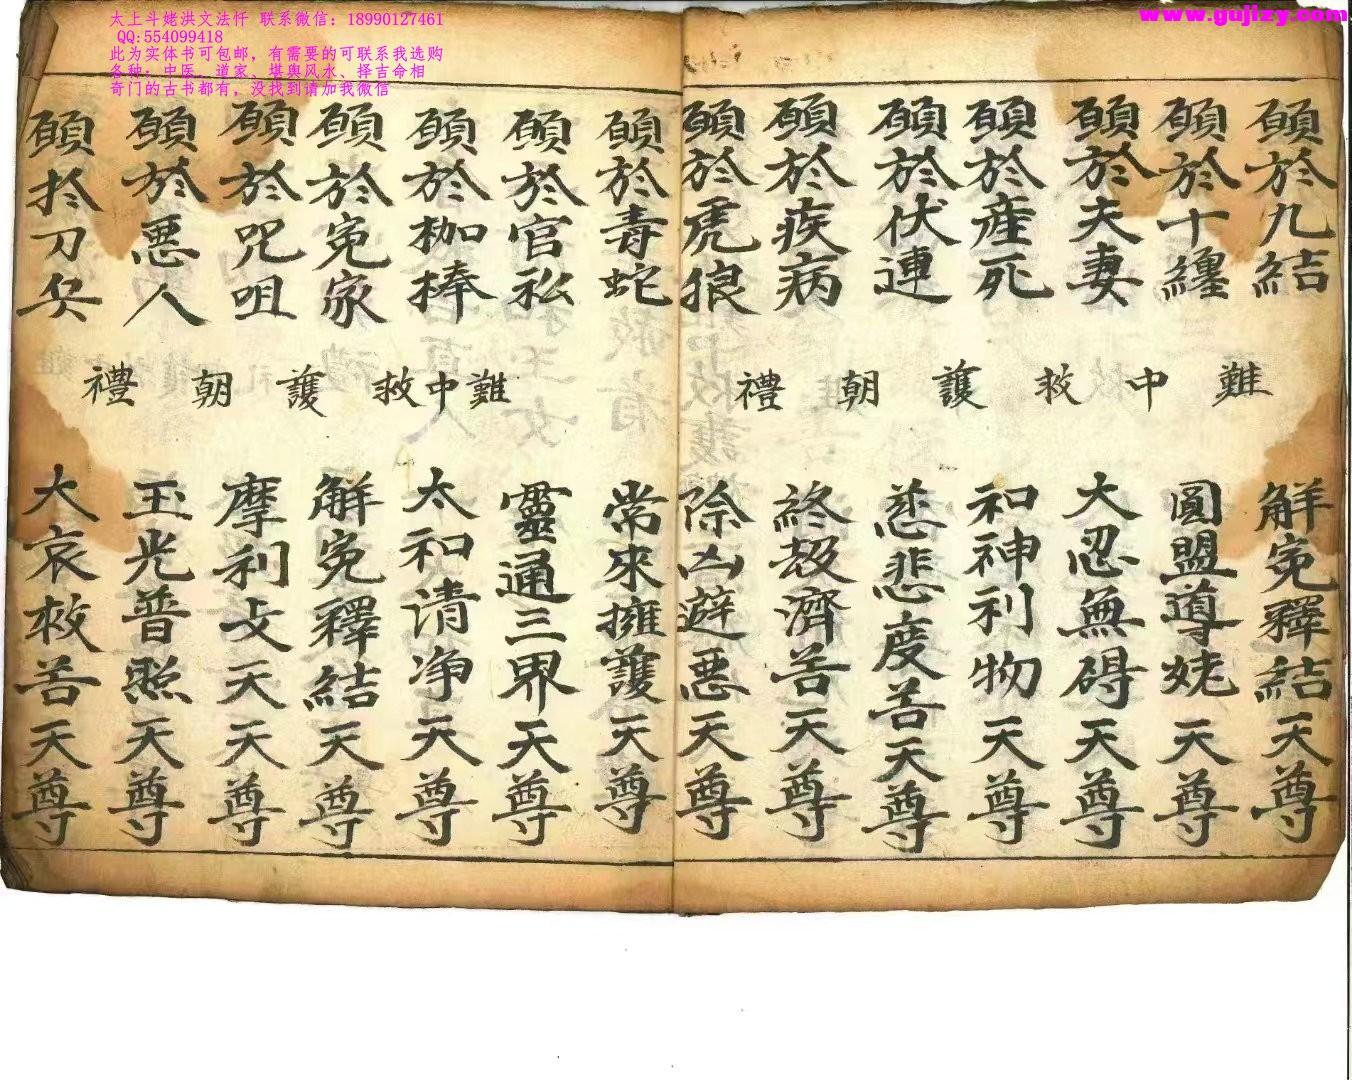 太上斗姥洪文法忏 联系微信：18990127461
QQ:554099418
此为实体书可包邮，有需要的可联系我选购
各种：中医、道家、堪舆风水、择吉命相
奇门的古书都有，没找到请加我微信
www.gujlzy.com
願於九結
願於十纏
願於夫妻
願於產死
願於伏連
願於疾病
願於虎狼
難中救護朝禮
解冤釋結天尊
圓盟導姥天尊
大忍無碍天尊
和神利物天尊
慈悲度苦天尊
終劫濟苦天尊
除凶避惡天尊
願於毒蛇
願於官私
願於枷棒
願於冤家
願於咒咀
願於惡人
願於刀兵
難中救護朝禮
常來擁護天尊
靈通三界天尊
太和清净天尊
解冤釋結天尊
摩利攴天天尊
玉光普照天尊
大哀救苦天尊